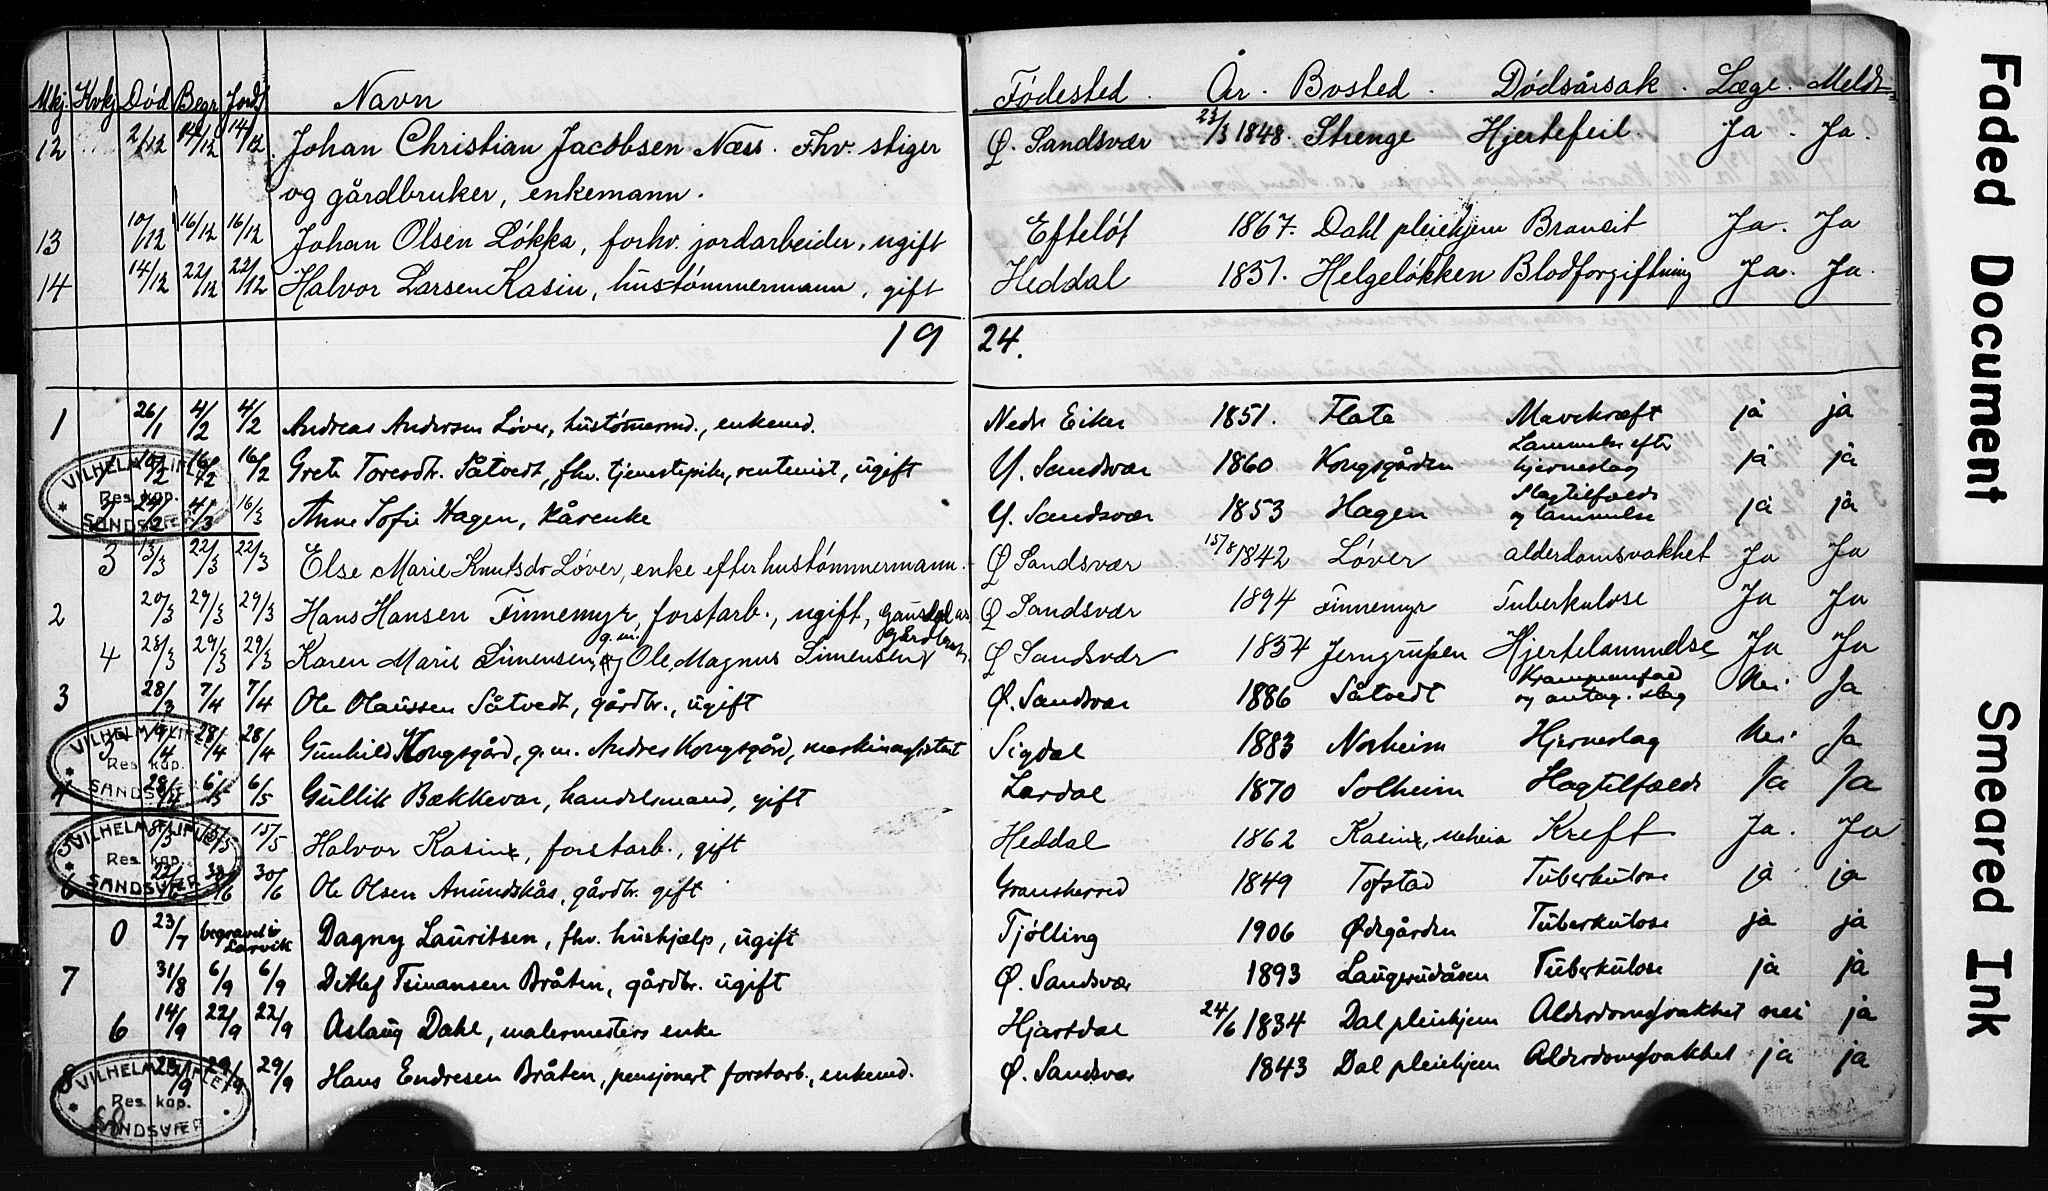 Mkj. Kvkj. Død Begr. Jordf. Navn Fødested. År. Bosted. Dødsårsak. Læge. Meldt
12 2/12 14/12 14/12 Johan Christian Jacobsen Næss. Fhv. stiger Ø. Sandsvær 23/3 1848. Strenge Hjertefeil. Ja. Ja.
og gårdbruker, enkemann.
13 10/12 16/12 16/12 Johan Olsen Løkka, forhv. jordarbeider, ugift Efteløt 1867. Dahl pleiehjem Bronkit Ja. Ja
14 14/12 22/12 22/12 Halvor Larsen Kasin, hustømmermann, gift Heddal 1851. Helgeløkken Blodforgiftning Ja. Ja.
19 24.
1 26/1 4/2 4/2 Andreas Andersen Løver, hustømermd., enkemd. Nedr Eiker 1851. Flata Mavekræft ja ja
16/2 16/2 Grete Toresdtr. Såtvedt, fhv. tjenestepike, rentenist, ugift Y. Sandsvær 1860 Kongsgården Lammelse efter hjerneslag ja ja
24/2 4/3 16/3 Anne Sofie Hagen, kårenke Y. Sandsvær 1853 Hagen Slagtilfælde og lammelse ja ja
3 13/3 22/3 22/3 Else Marie Knutsdr Løver, enke efter hustømmermann. Ø Sandsvær 15/8 1842 Løver alderdomsvakhet Ja Ja
2 20/3 29/3 29/3 Hans Hansen Finnemyr, forstarb., ugift, Ø Sandsvær 1894 Finnemyr Tuberkulose Ja Ja
4 23/3 29/3 29/3 Karen Marie Simensen, g.m. Ole Magnus Simensen gårdbruk. Ø Sandsvær 1854 Jerngruben Hjertelammelse Ja Ja
3 28/3 7/4 7/4 Ole Olaussen Såtvedt, gårdbr., ugift Ø. Sandsvær 1886 Såtvedt og antag. slag Nei Ja
28/4 28/4 Gunhild Kongsgård, g.m. Andres Kongsgård, Sigdal 1883 Norheim Hjerneslag Nei Ja
4 28/4 6/5 6/5 Gullik Bækkevar, handelsmand, gift Lardal 1870 Solheim Slagtilfælde Ja Ja
5 8/5 15/5 15/5 Halvor Kasin, forstarb., gift Heddal 1862 Kasin, Kreft Ja. Ja
6 22/6 30/6 30/6 Ole Olsen Amundskås, gårdbr. gift Gransherred 1849 Tofstad Tuberkulose ja ja
0 23/7 begravet i Larvik Dagny Lauritsen, fhv. hushjælp, ugift Tjølling 1906 Ødegården Tuberkulose ja ja
7 31/8 6/9 6/9 Ditlef Bråten, gårdbr. ugift Ø. Sandsvær 1893 Laugerudåsen Tuberkulose ja ja
6 14/9 22/9 22/9 Aslaug Dahl, malermesters enke Hjartdal 24/6 1834 Dal pleiehjem Alderdomsvakhet nei ja
8 23/9 29/9 29/9 Hans Endresen Bråten, pensjonert forstarb., enkemd. Ø. Sandsvær 1843 Dal pleiehjem Alderdomsvakhet ja ja
VILHELM FLIFLET
Res. kap.
SANDSVÆR
VILHELM FLIFLET
Res. kap.
SANDSVÆR
VILHELM FLIFLET
Res. kap.
SANDSVÆR
VILHELM FLIFLET
Res. kap.
SANDSVÆR
Faded Document
Smeared Ink